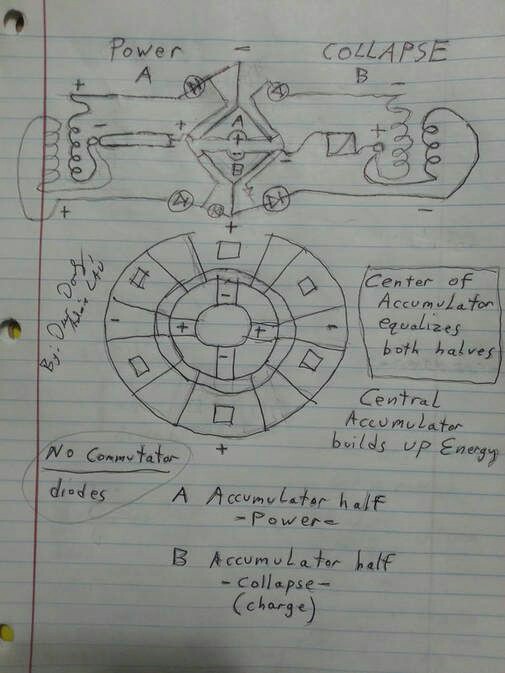 Power
A
COLLAPSE
B
A
B
Center of
Accumulator
equalizes
both halves
Central
Accumulator
builds up Energy
By:
No Commutator
diodes
A Accumulator half
- Power -
B Accumulator half
- Collapse -
(charge)